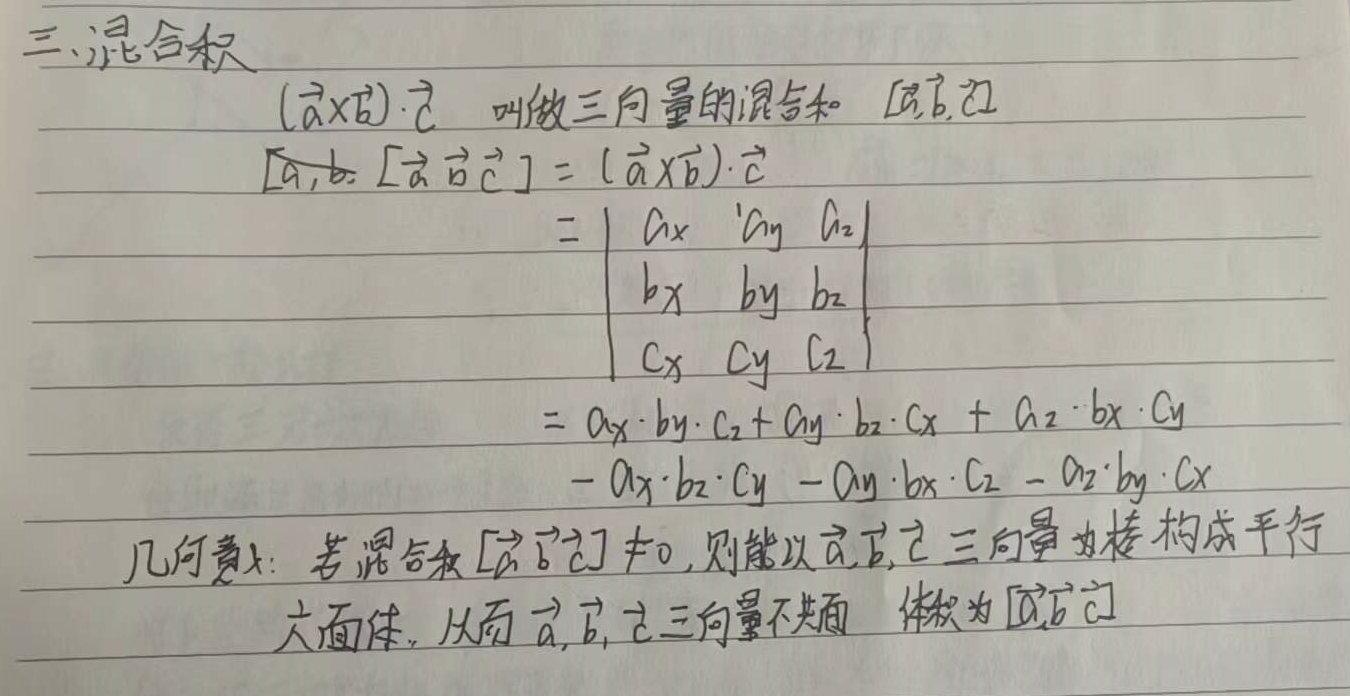 三、混合积
(a⃗×b⃗)·c⃗ 叫做三向量的混合积 [a⃗,b⃗,c⃗]
[a,b, [a⃗ b⃗ c⃗] = (a⃗×b⃗)·c⃗
= | ax ay az |
| bx by bz |
| cx cy cz |
= ax·by·cz + ay·bz·cx + az·bx·cy
- ax·bz·cy - ay·bx·cz - az·by·cx
几何意义: 若混合积[a⃗ b⃗ c⃗]≠0,则能以a⃗,b⃗,c⃗三向量为棱构成平行
六面体,从而a⃗,b⃗,c⃗三向量不共面 体积为[a⃗,b⃗ c⃗]